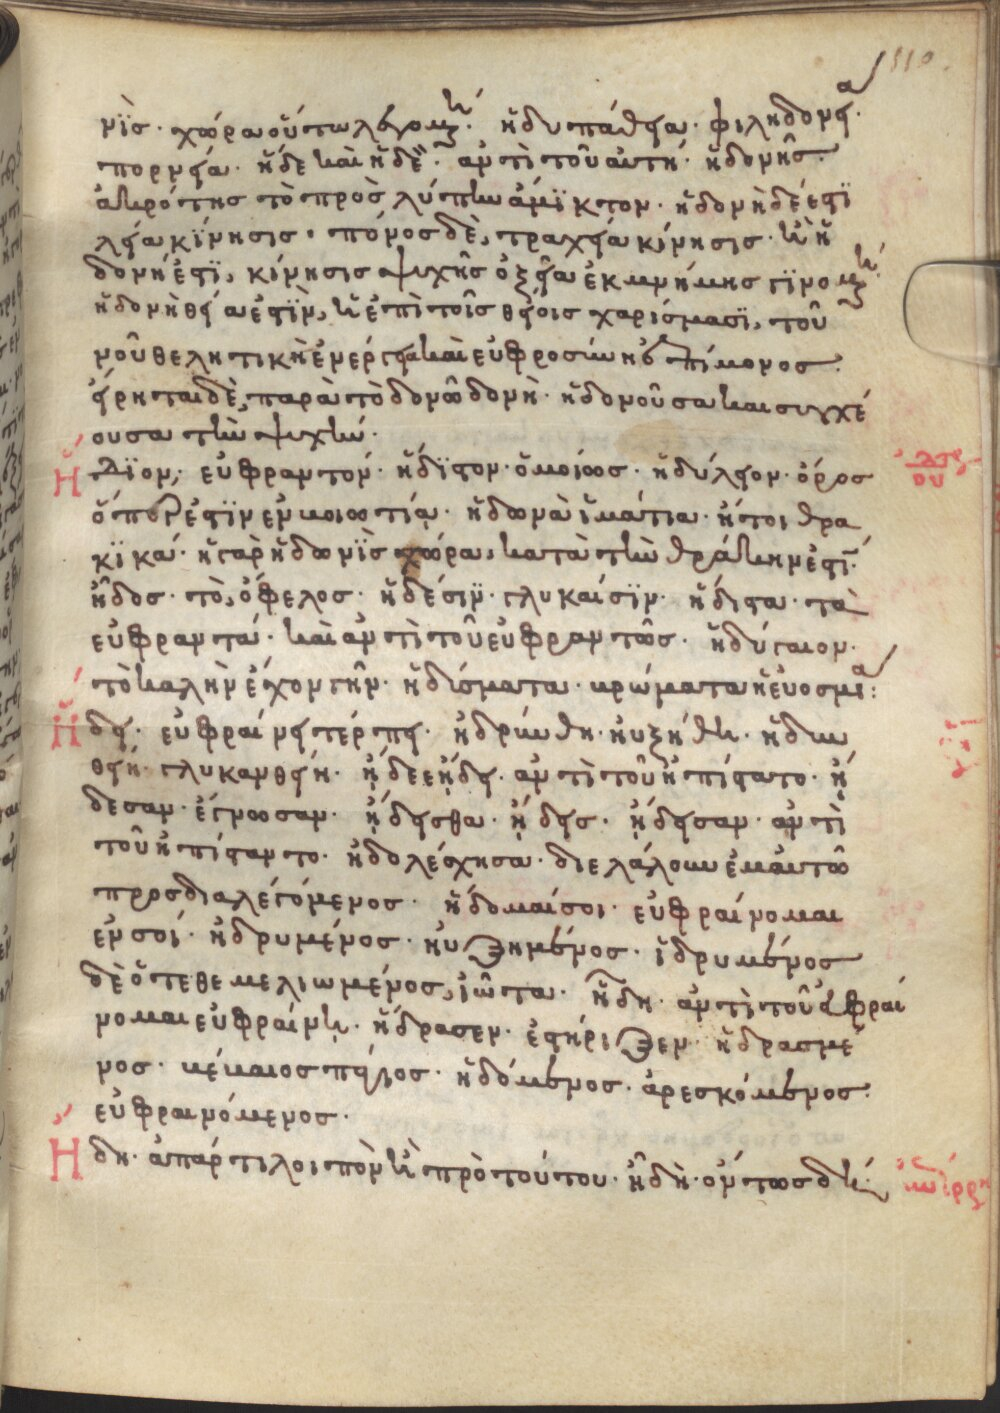 110.
νῒς· χώρα οὕτω λεγομένη· ἡδυπάθεια· φιληδονεία·
πορνεία· ἥδε καὶ ἡδέ· ἀντὶ τοῦ αὐτή· ἡδονῆς·
ἀκρότης τὸ πρὸς λύπην ἀμϊκτον· ἡδονὴ δέ ἐστϊ
λεία κΐνησις· πόνος δὲ, τραχεία κίνησις· καὶ ἡ
δονή ἐστϊ, κίνησις ψυχῆς ὀξεῖα ἐκ μνήμης γϊνομένη·
ἡδονὴ θεία ἐστὶν, καὶ ἐπὶ τοῖς θείοις χαρίσμασϊ, τοῦ
νοῦ θελητικὴ ἐνέργεια καὶ εὐφροσύνη ἐπίμονος·
εἴρηται δὲ, παρὰ τὸ δονῶ δονὴ· ἡδονοῦσα καὶ συγχέ
ουσα τὴν ψυχήν·
Ἥδϊον, εὐφραντόν· ἥδϊστον· ὁμοίως· ἡδύλειον· ὄρος
ὅπερ ἐστὶν ἐν κοιωστία· ἡδωνὰ ἱμάτια· ἤτοι θρα
κϊκά· ἡ γὰρ ἡδωνῒς χώρα, κατὰ τὴν θράκην ἐστϊ·
ἦδος· τὸ, ὄφελος· ἡδέσϊν· γλυκαίσϊν· ἥδιστα· τὰ
εὐφραντά· καὶ ἀντὶ τοῦ εὐφραντῶς· ἡδύγαιον·
τὸ καλὴν ἔχον γῆν· ἡδίσματα· κρώματα ἢ εὐοσμία:
Ἥδει· εὐφραίνει τέρπει· ἡδρύνθη· ηὐξήθη· ἡδυν
θείη· γλυκανθείη· ᾔδεε ᾔδει· ἀντὶ τοῦ ἠπίστατο· ᾔ
δεσαν· ἔγνωσαν· ᾔδεισθα· ᾔδεις· ᾔδεισαν· ἀντὶ
τοῦ ἠπίσταντο· ἠδολέσχησα· διελάλουν ἐμαυτῶ
προσδιαλεγόμενος· ἥδομαί σοι· εὐφραίνομαι
ἐν σοί· ἡδρυμένος· ηὐξημένος· ἱδρυμένος
δὲ ὅτε θεμελιωμένος, ἰῶτα· ἥδη· ἀντὶ τοῦ εὐφραί
νομαι εὐφραίνῃ· ἥδρασεν· ἐστήριξεν· ἡδρασμέ
νος· ἡδόμενος· ἀρεσκόμενος·
εὐφραινόμενος·
Ἤδη· ἀπάρτι λοιπὸν καὶ πρὸ τούτου· ἤδη· ὄντως δή·